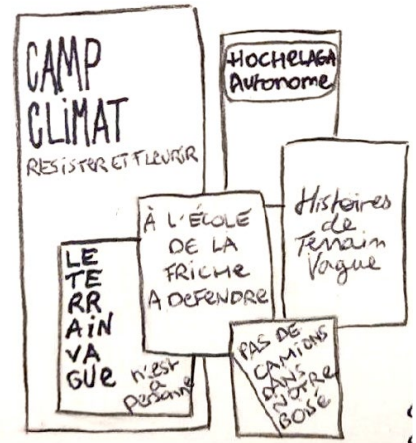 CAMP
CLIMAT
RESISTER ET FLEURIR
HOCHELAGA
Autonome
Histoires
de
Terrain
Vague
À L'ÉCOLE
DE LA
FRICHE
A DEFENDRE
LE
TE
RR
AiN
VA
GUE
n'est
à
personne
PAS DE
CAMIONS
DANS
NOTRE
BOISÉ